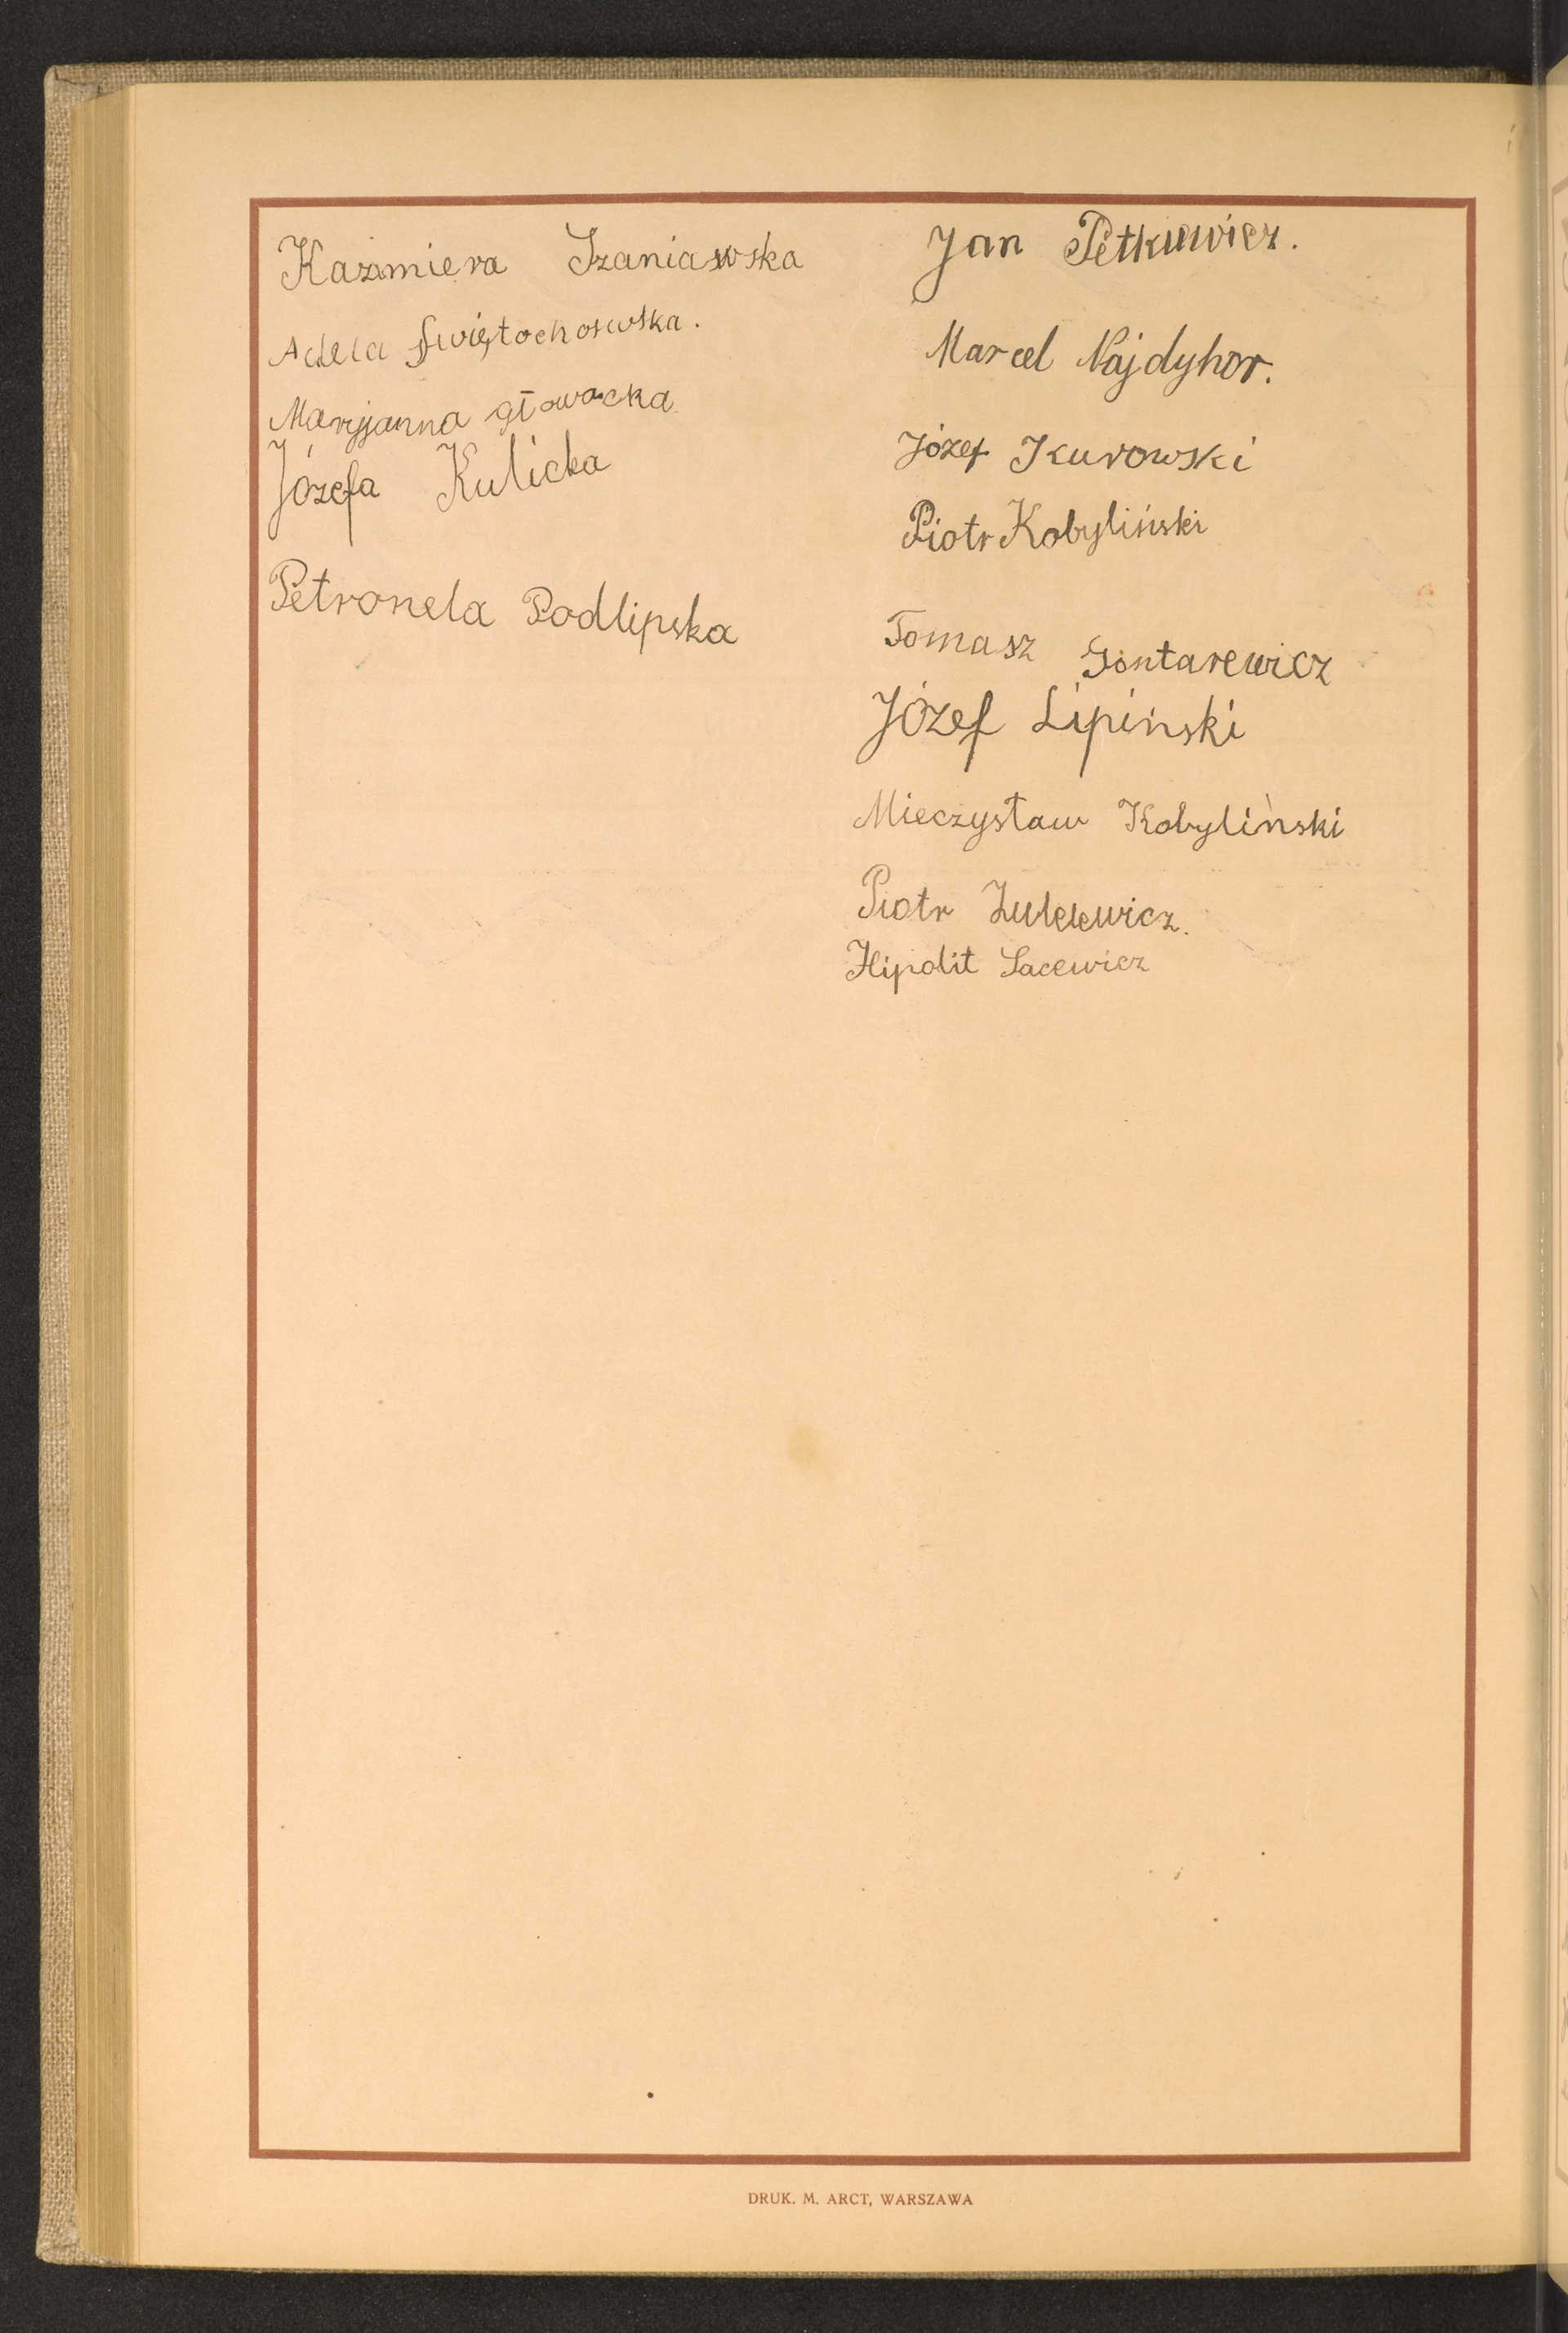 Kazimiera Szaniawska
Adela Świętochowska.
Maryjanna Głowacka
Józefa Kulicka
Petronela Podlipska
Jan Petkiewicz.
Marcel Najdyhor.
Józef Kurowski
Piotr Kobyliński
Tomasz Gontarewicz
Józef Lipiński
Mieczysław Kobyliński
Piotr
Hipolit Sacewicz
DRUK. M. ARCT, WARSZAWA